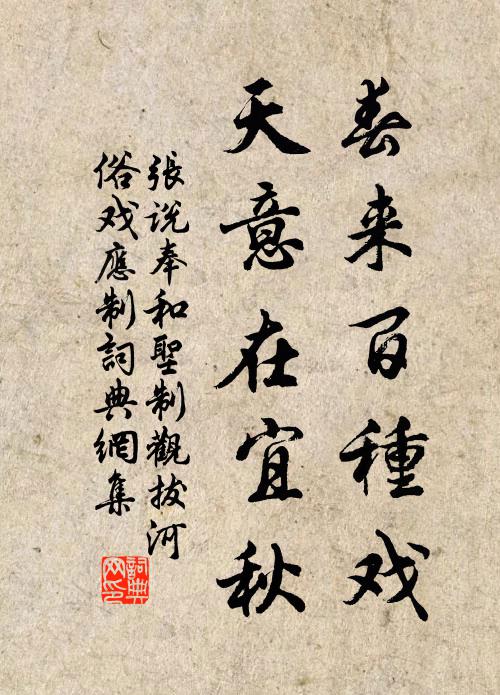 春来百種戏
天意在宜秋
張说奉和聖制觀拔河
俗戏應制詞典網集
詞典网印